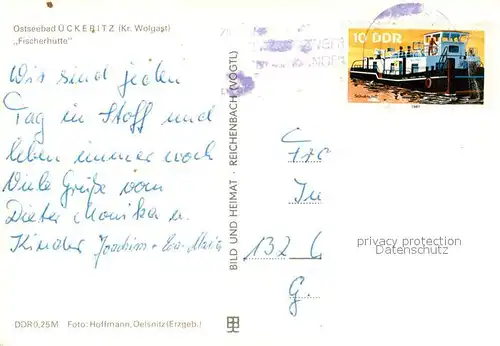 Ostseebad ÜCKERITZ (Kr. Wolgast)
„Fischerhütte"
10 DDR
1981
Wir sind jeden
Tag in Stoff und
leben immer noch
Viele Grüße von
Dieter Monika u.
Kinder Joachim + Eva-Maria
BILD UND HEIMAT · REICHENBACH (VOGTL)
132
G.
privacy protection
Datenschutz
DDR 0,25 M Foto: Hoffmann, Oelsnitz (Erzgeb.)